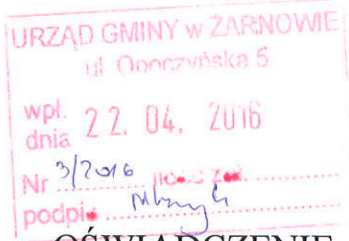 URZĄD GMINY w ŻARNOWIE
ul. Opoczyńska 5
wpł.
dnia 22. 04. 2016
Nr 3/2016 ilość zał.
podpis
OŚWIADCZENIE